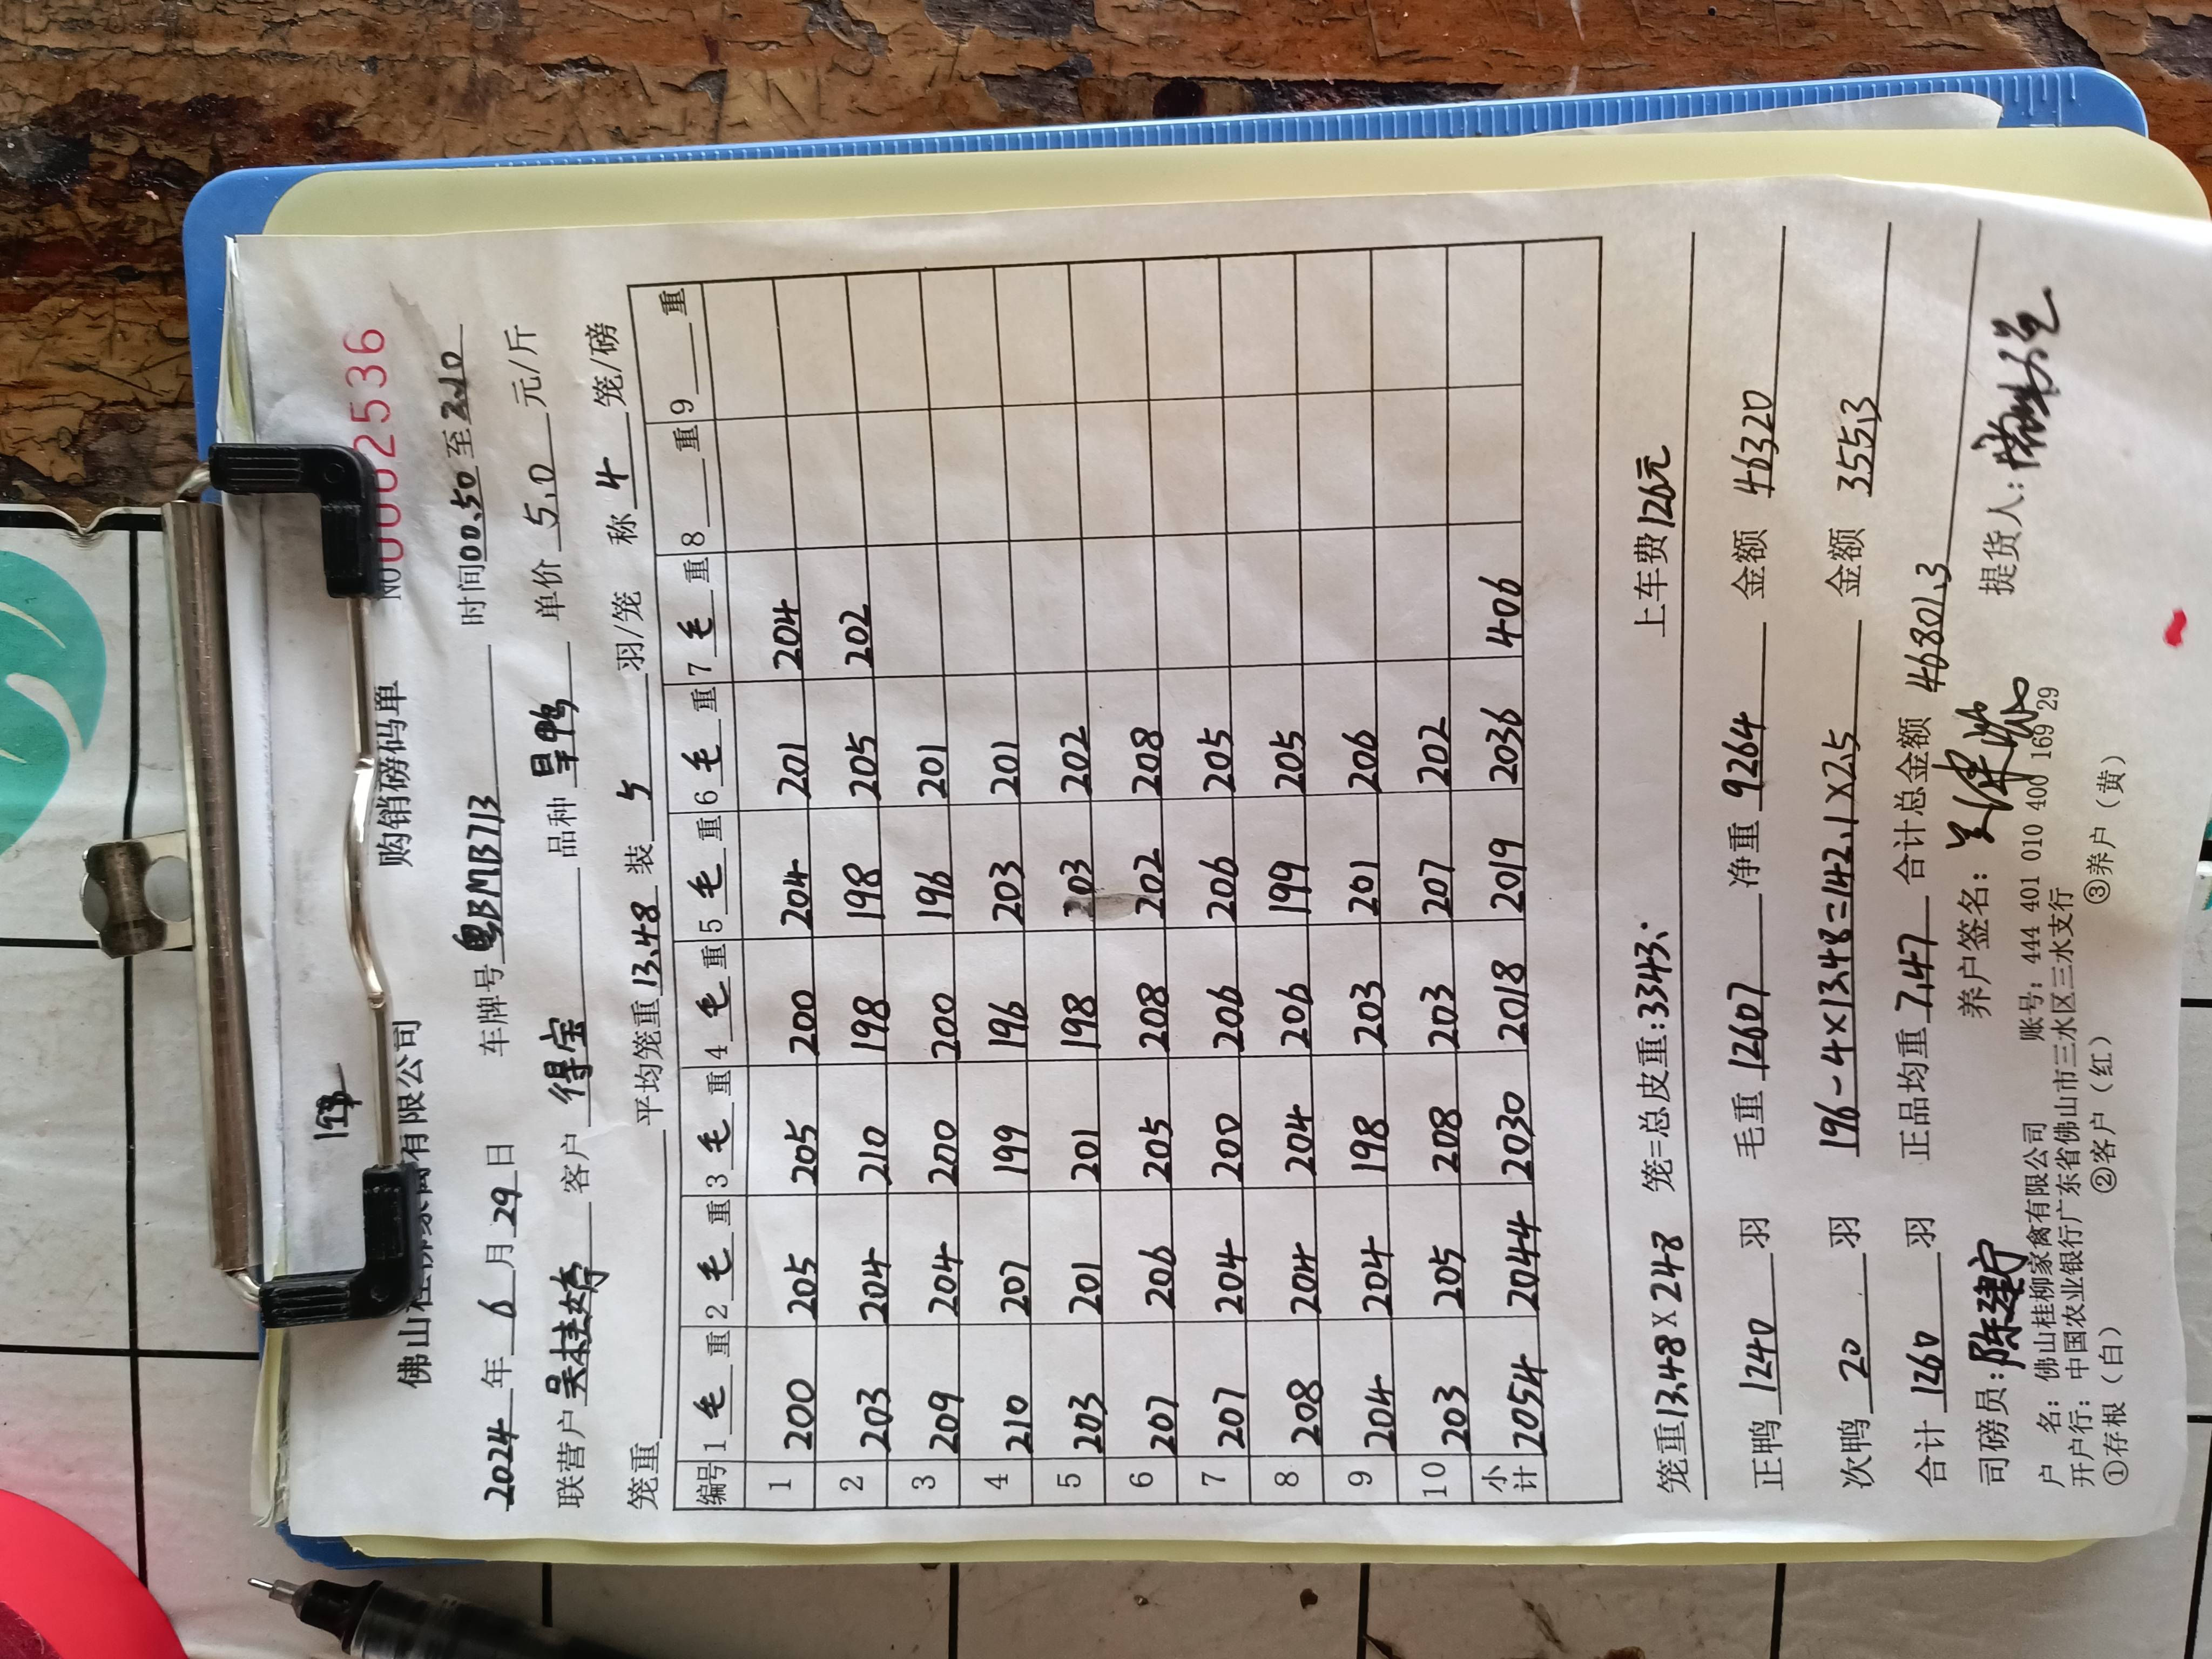 佛山桂柳家禽有限公司 购销磅码单 No 0002536
2024年6月29日 车牌号 粤BMB713 时间00.50至2.10
联营户 吴桂婷 客户 得宝 品种 旱鸭 单价 5.0 元/斤
笼重 平均笼重 13.48 装 5 羽/笼 称 4 笼/磅
编号 1 毛 重 2 毛 重 3 毛 重 4 毛 重 5 毛 重 6 毛 重 7 毛 重 8 重 9 重
1 200 205 205 200 204 201 204
2 203 204 210 198 198 205 202
3 209 204 200 200 196 201
4 210 207 199 196 203 201
5 203 201 201 198 203 202
6 207 206 205 208 202 208
7 207 204 200 206 206 205
8 208 204 204 206 199 205
9 204 204 198 203 201 206
10 203 205 208 203 207 202
小计 2054 2044 2030 2018 2019 2036 406
笼重13.48X248 笼=总皮重:3343. 上车费126元
正鸭 1240 羽 毛重 12607 净重 9264 金额 46320
次鸭 20 羽 196-4×13.48=142.1×2.5 金额 355.3
合计 1260 羽 正品均重 7.47 合计总金额 46801.3
司磅员:陈建宁 养户签名: 提货人:
户 名: 佛山桂柳家禽有限公司 账号: 444 401 010 400 169 29
开户行: 中国农业银行广东省佛山市三水区三水支行
①存根(白) ②客户(红) ③养户(黄)